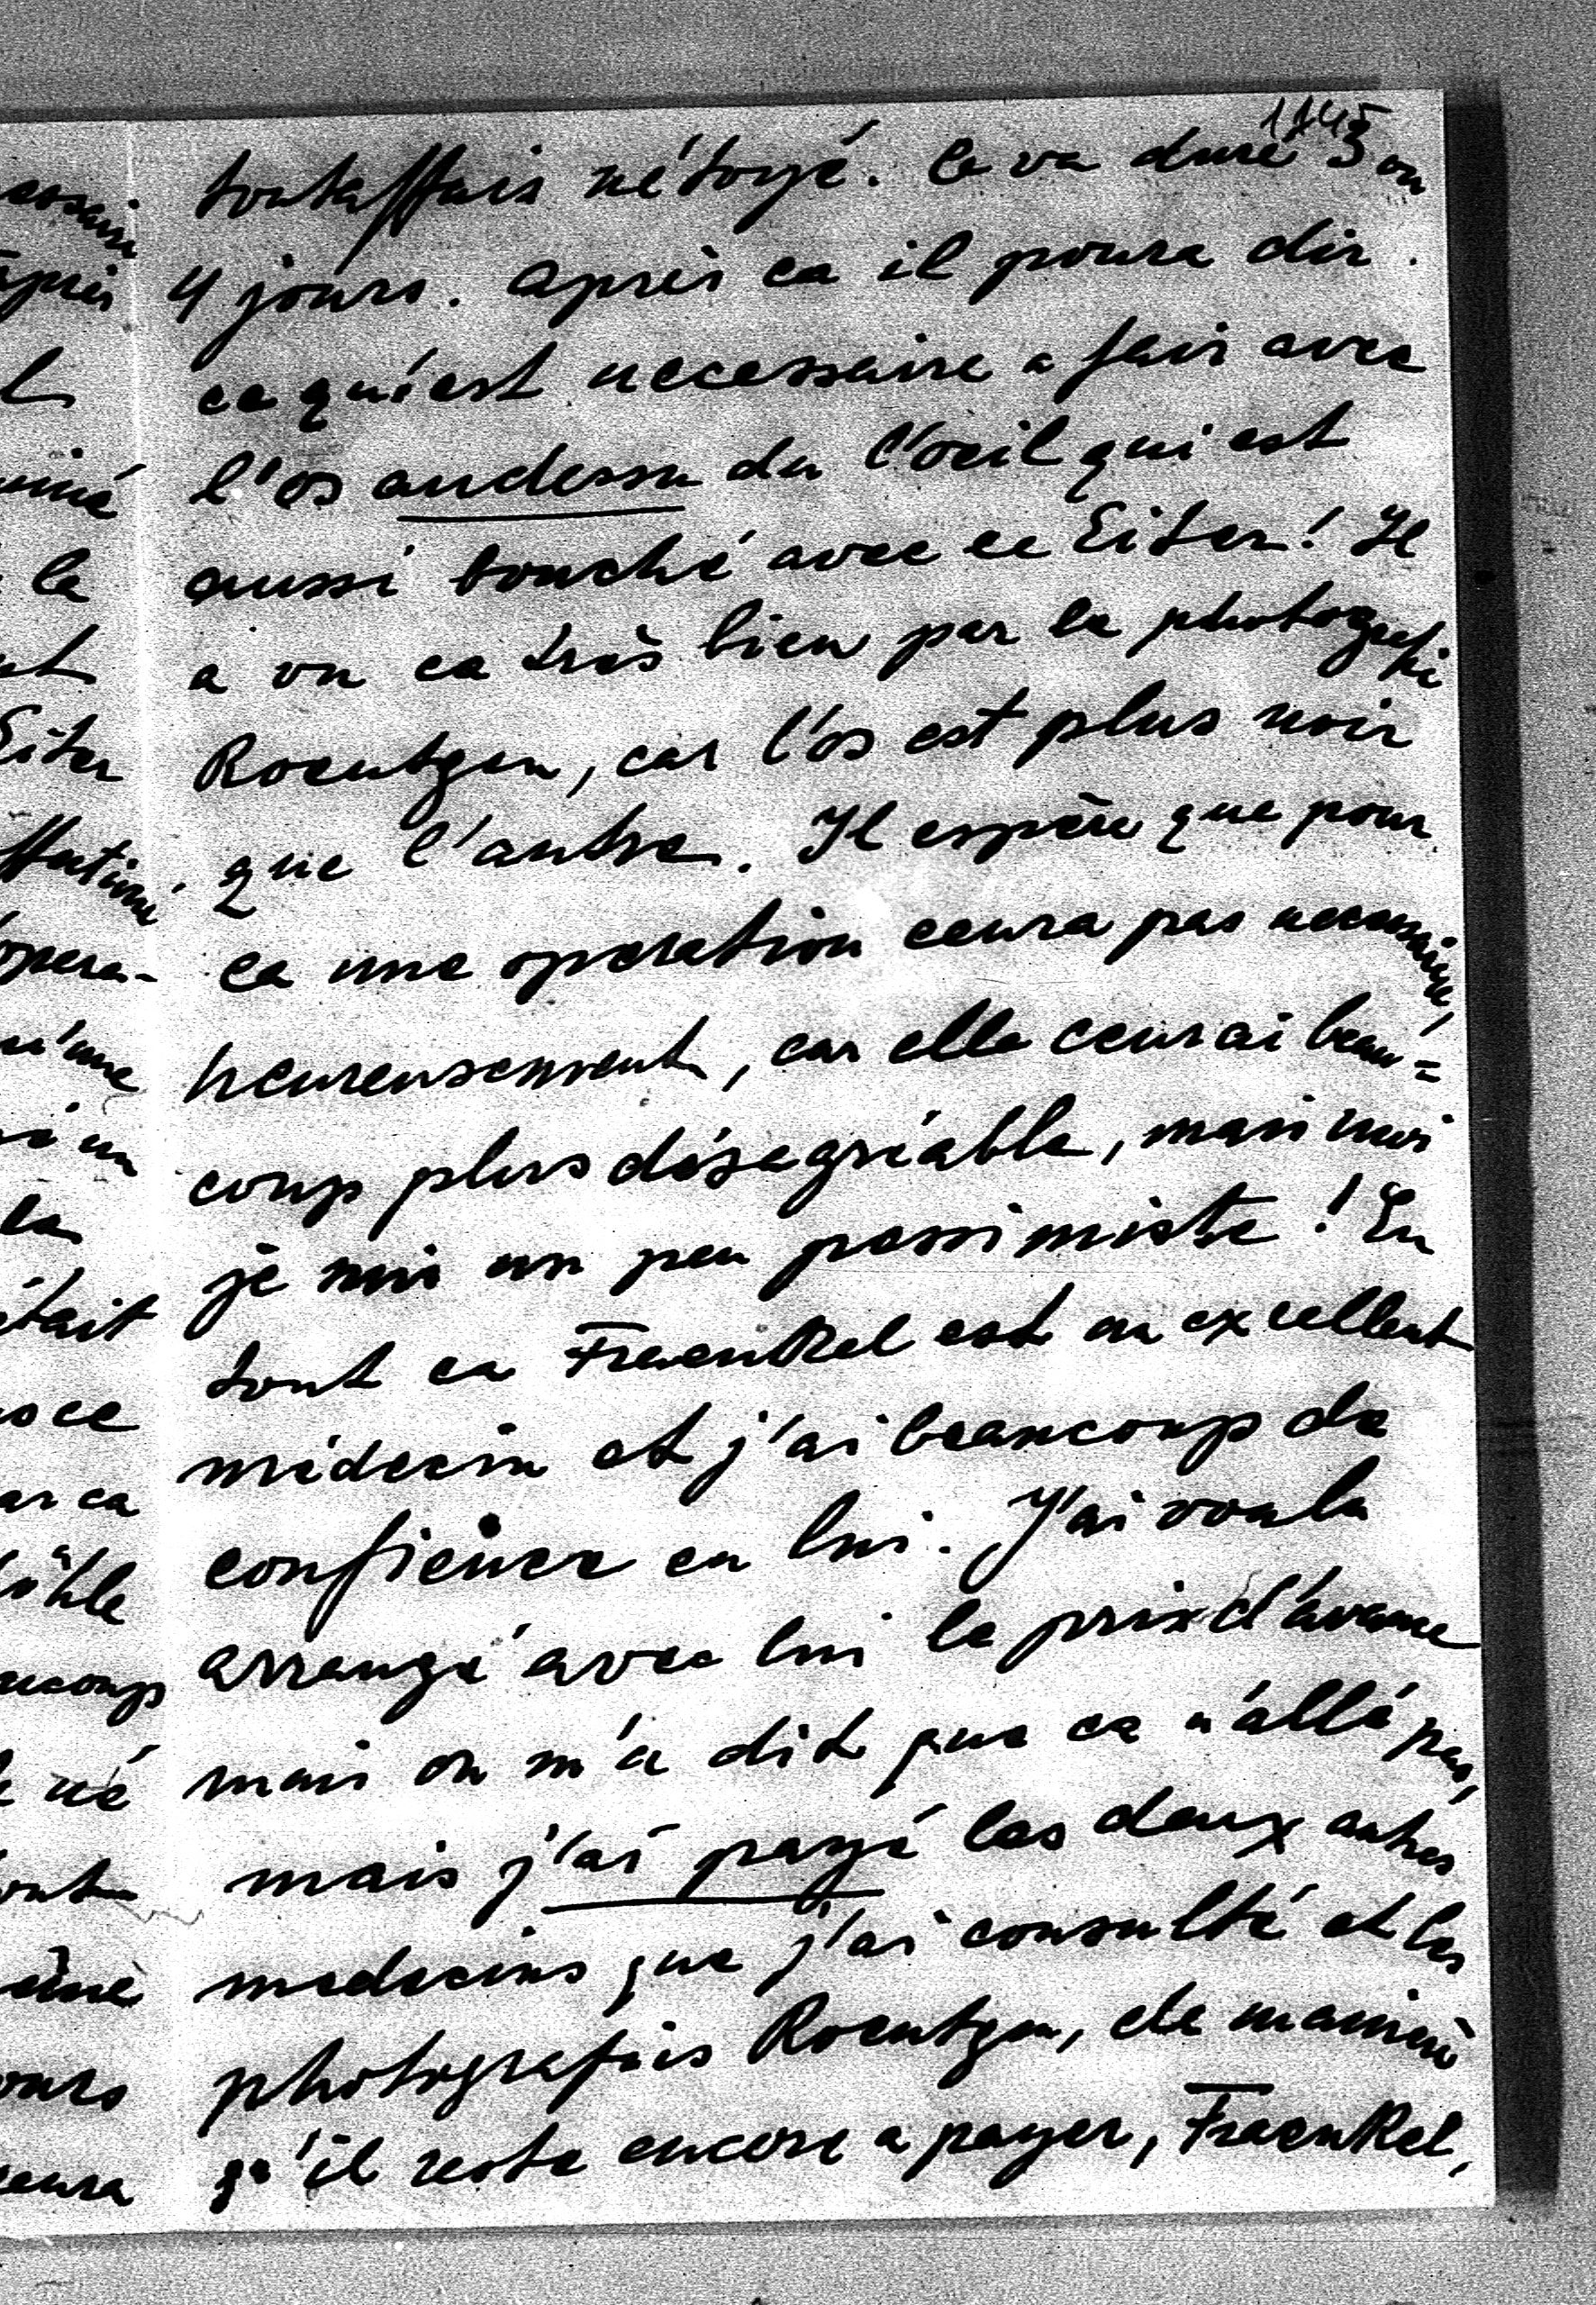 1145
toutaffais nétoyé. Ce va duré 3 ou
4 jours. Après ca il poura dir
ce qu'est necessaire a fair avec
l'os audessu du l'oeil qui est
aussi touché avec ce Eiter! Il
a vu ca très bien par la photografi
Roentgen, car l'os est plus noir
que l'autre. Il espère que pour
ca une operation ceura pas necessaire,
heureusement, car elle ceurai beau=
coup plus désagréable, mais moi
je suis un peu pessimiste! En
tout ca Fraenkel est un excellent
médecin et j'ai beaucoup de
confience en lui. J'ai voulu
arrangé avec lui le prix d'avance
mais on m'a dit que ca n'allé pas,
mais j'ai payé les deux autres
medecins que j'ai consulté et les
photografies Roentgen, de mainiere
qu'il reste encore a payer, Fraenkel,